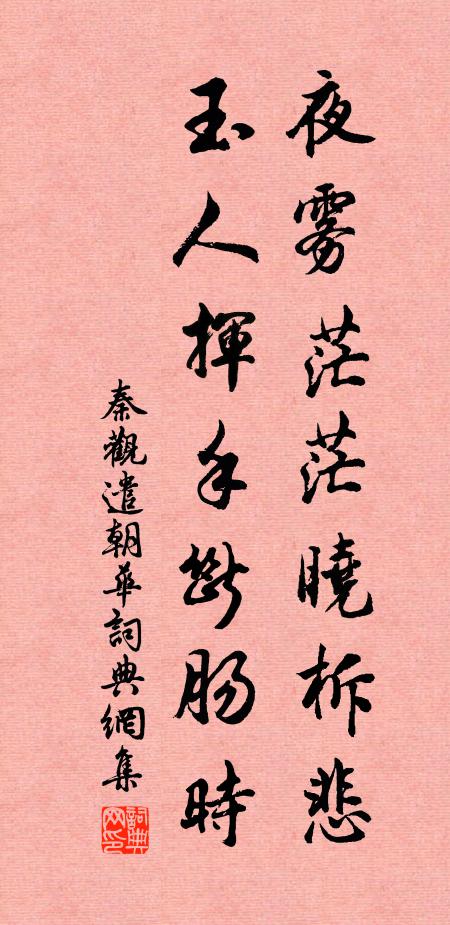 夜雾茫茫曉柝悲
玉人揮手斷肠時
秦觀遣朝華詞典網集
詞典
网印